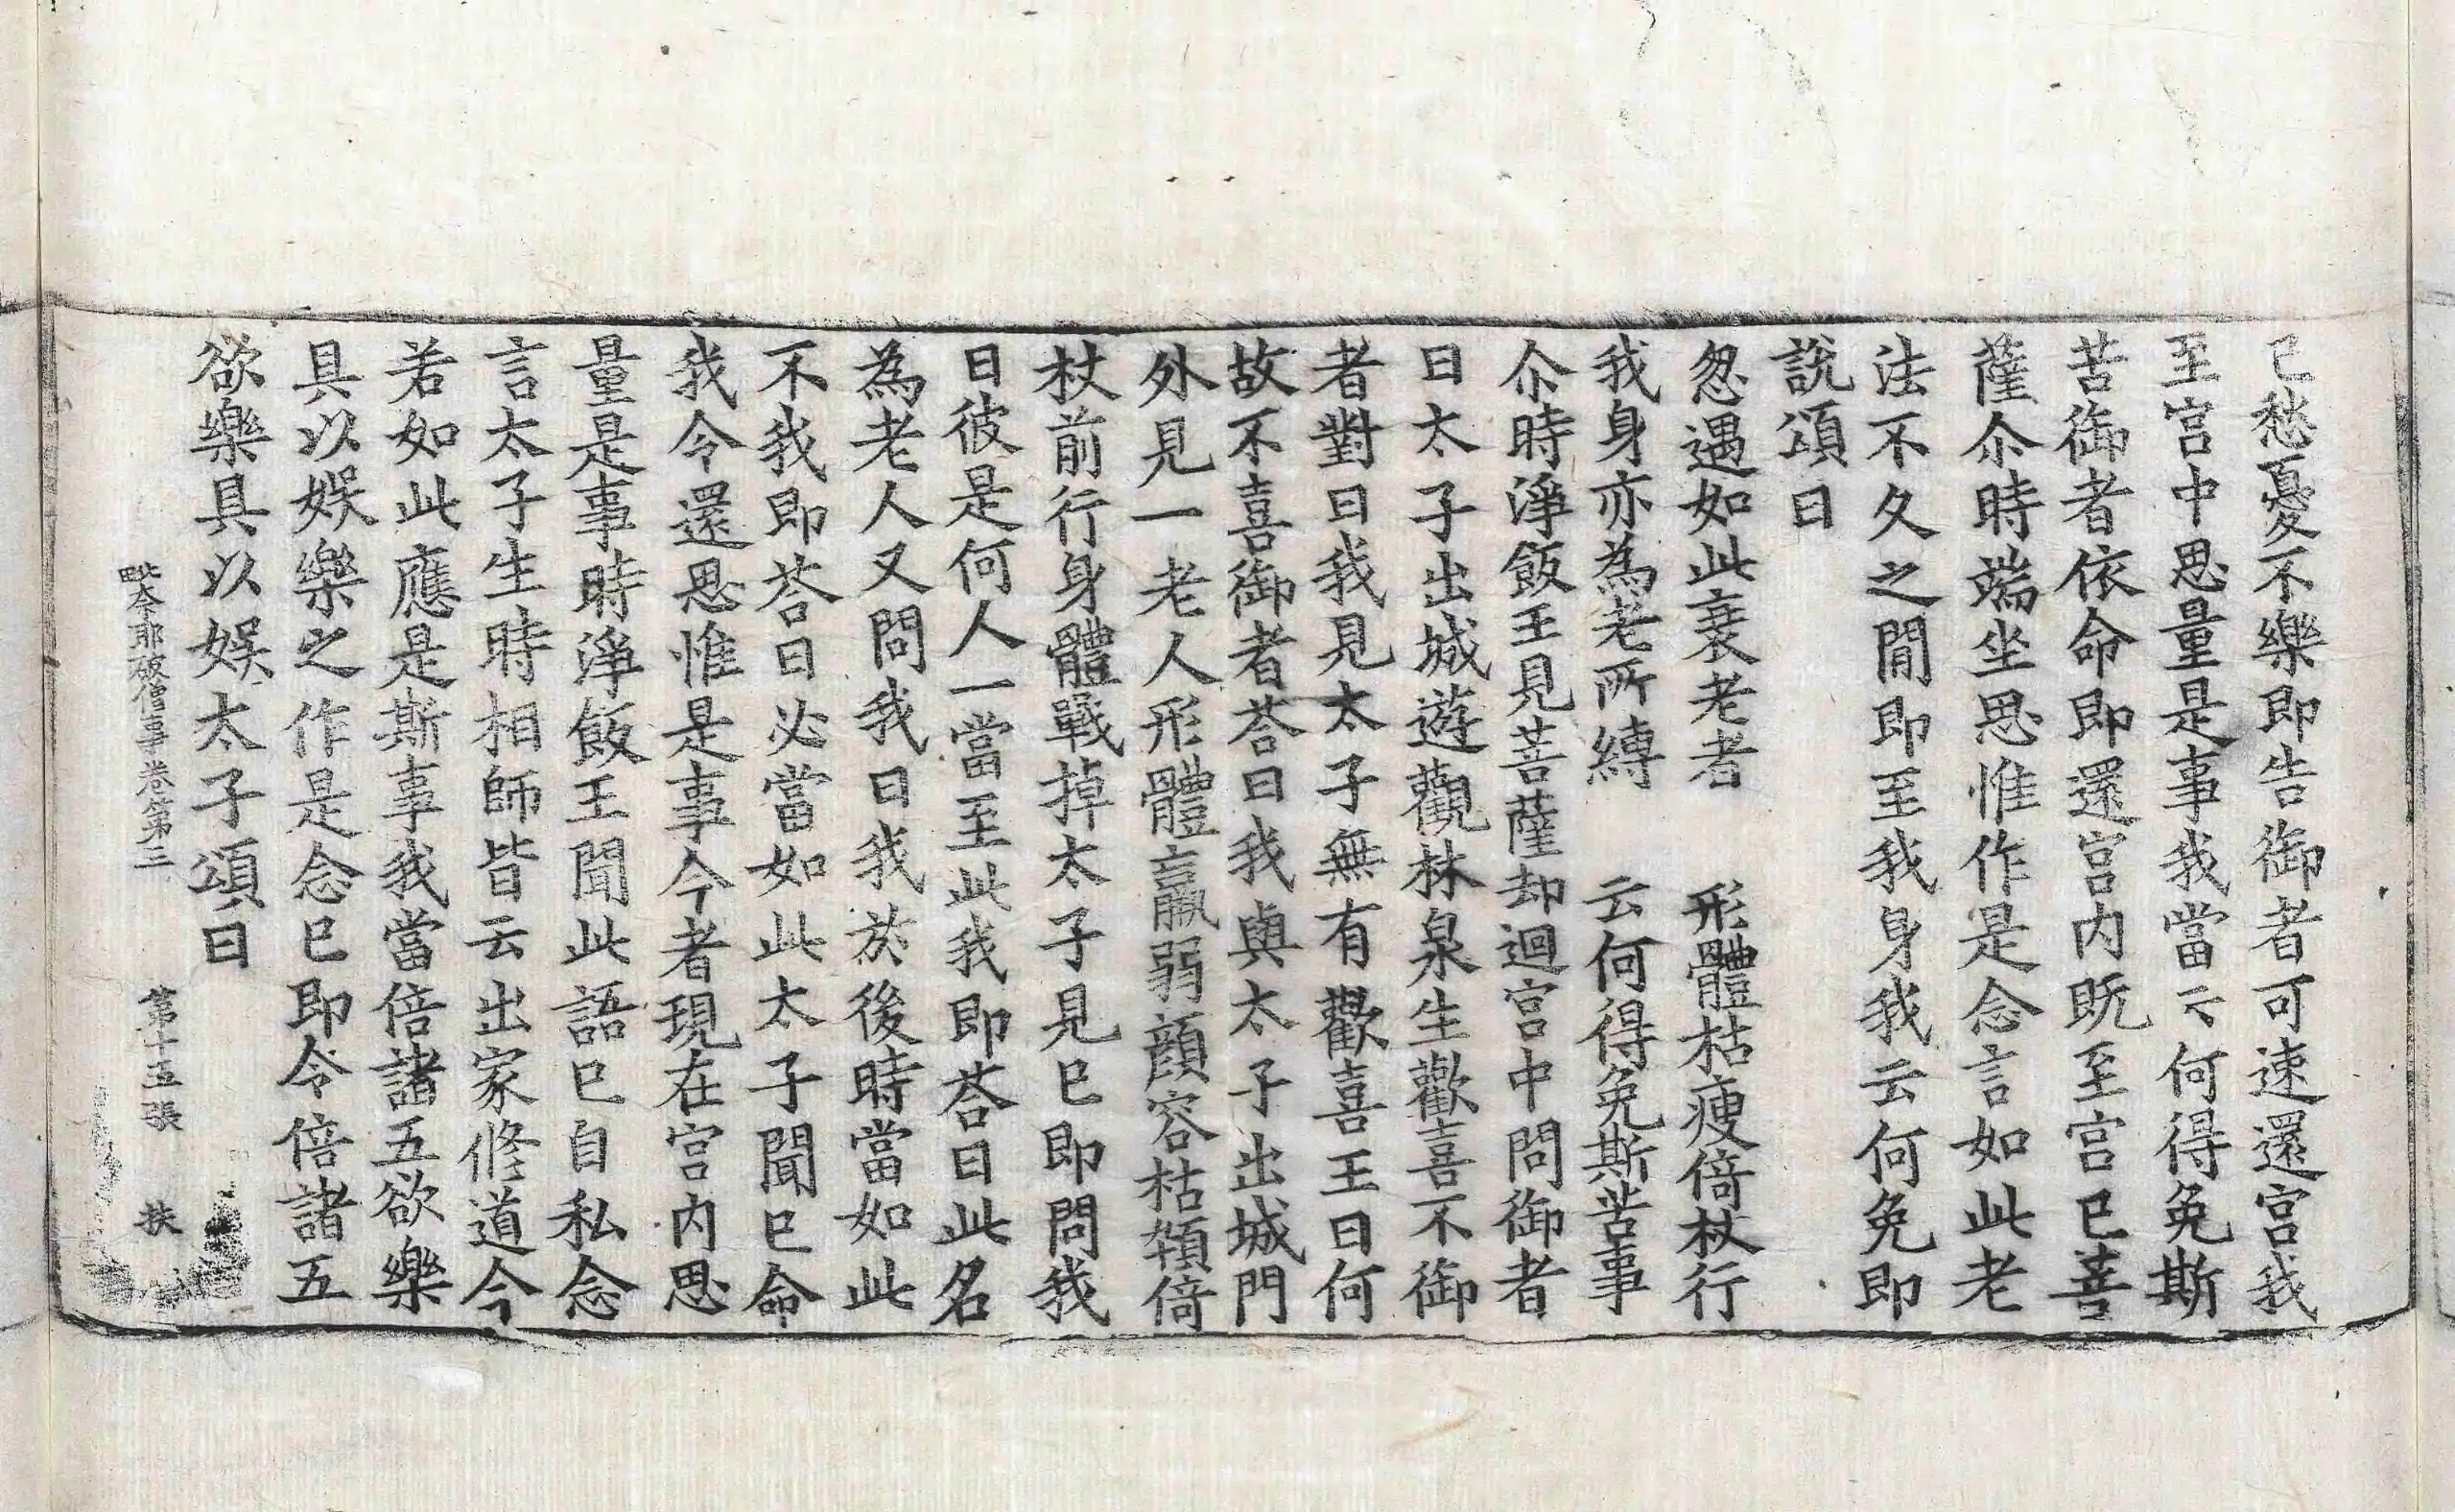 已愁憂不樂即告御者可速還宮我
至宮中思量是事我當云何得免斯
苦御者依命即還宮内既至宮已菩
薩尒時端坐思惟作是念言如此老
法不久之間即至我身我云何免即
說頌曰
忽遇如此衰老者　形體枯瘦倚杖行
我身亦為老所縛　云何得免斯苦事
尒時淨飯王見菩薩却迴宮中問御者
曰太子出城遊觀林泉生歡喜不御
者對曰我見太子無有歡喜王曰何
故不喜御者荅曰我與太子出城門
外見一老人形體羸弱顔容枯顇倚
杖前行身體戰掉太子見已即問我
曰彼是何人一當至此我即荅曰此名
為老人又問我曰我於後時當如此
不我即荅曰必當如此太子聞已命
我令還思惟是事今者現在宮内思
量是事時淨飯王聞此語已自私念
言太子生時相師皆云出家修道今
若如此應是斯事我當倍諸五欲樂
具以娛樂之作是念已即令倍諸五
欲樂具以娛太子頌曰
毗奈耶破僧事卷第三　第十五張　扶